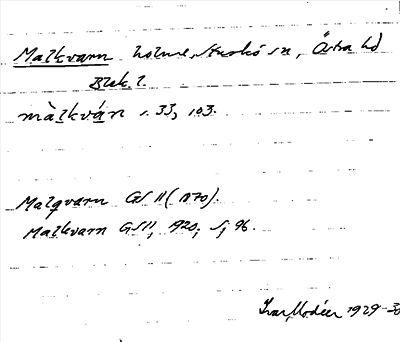 Malkvarn holme, Sturkö sn, Östra hd
Blek. l.
màlkván s. 33, 103.
Malqvarn GS 11 (1870).
Malkvarn GS 11, 1920, s, 96.
Ivar Modéer 1929-30